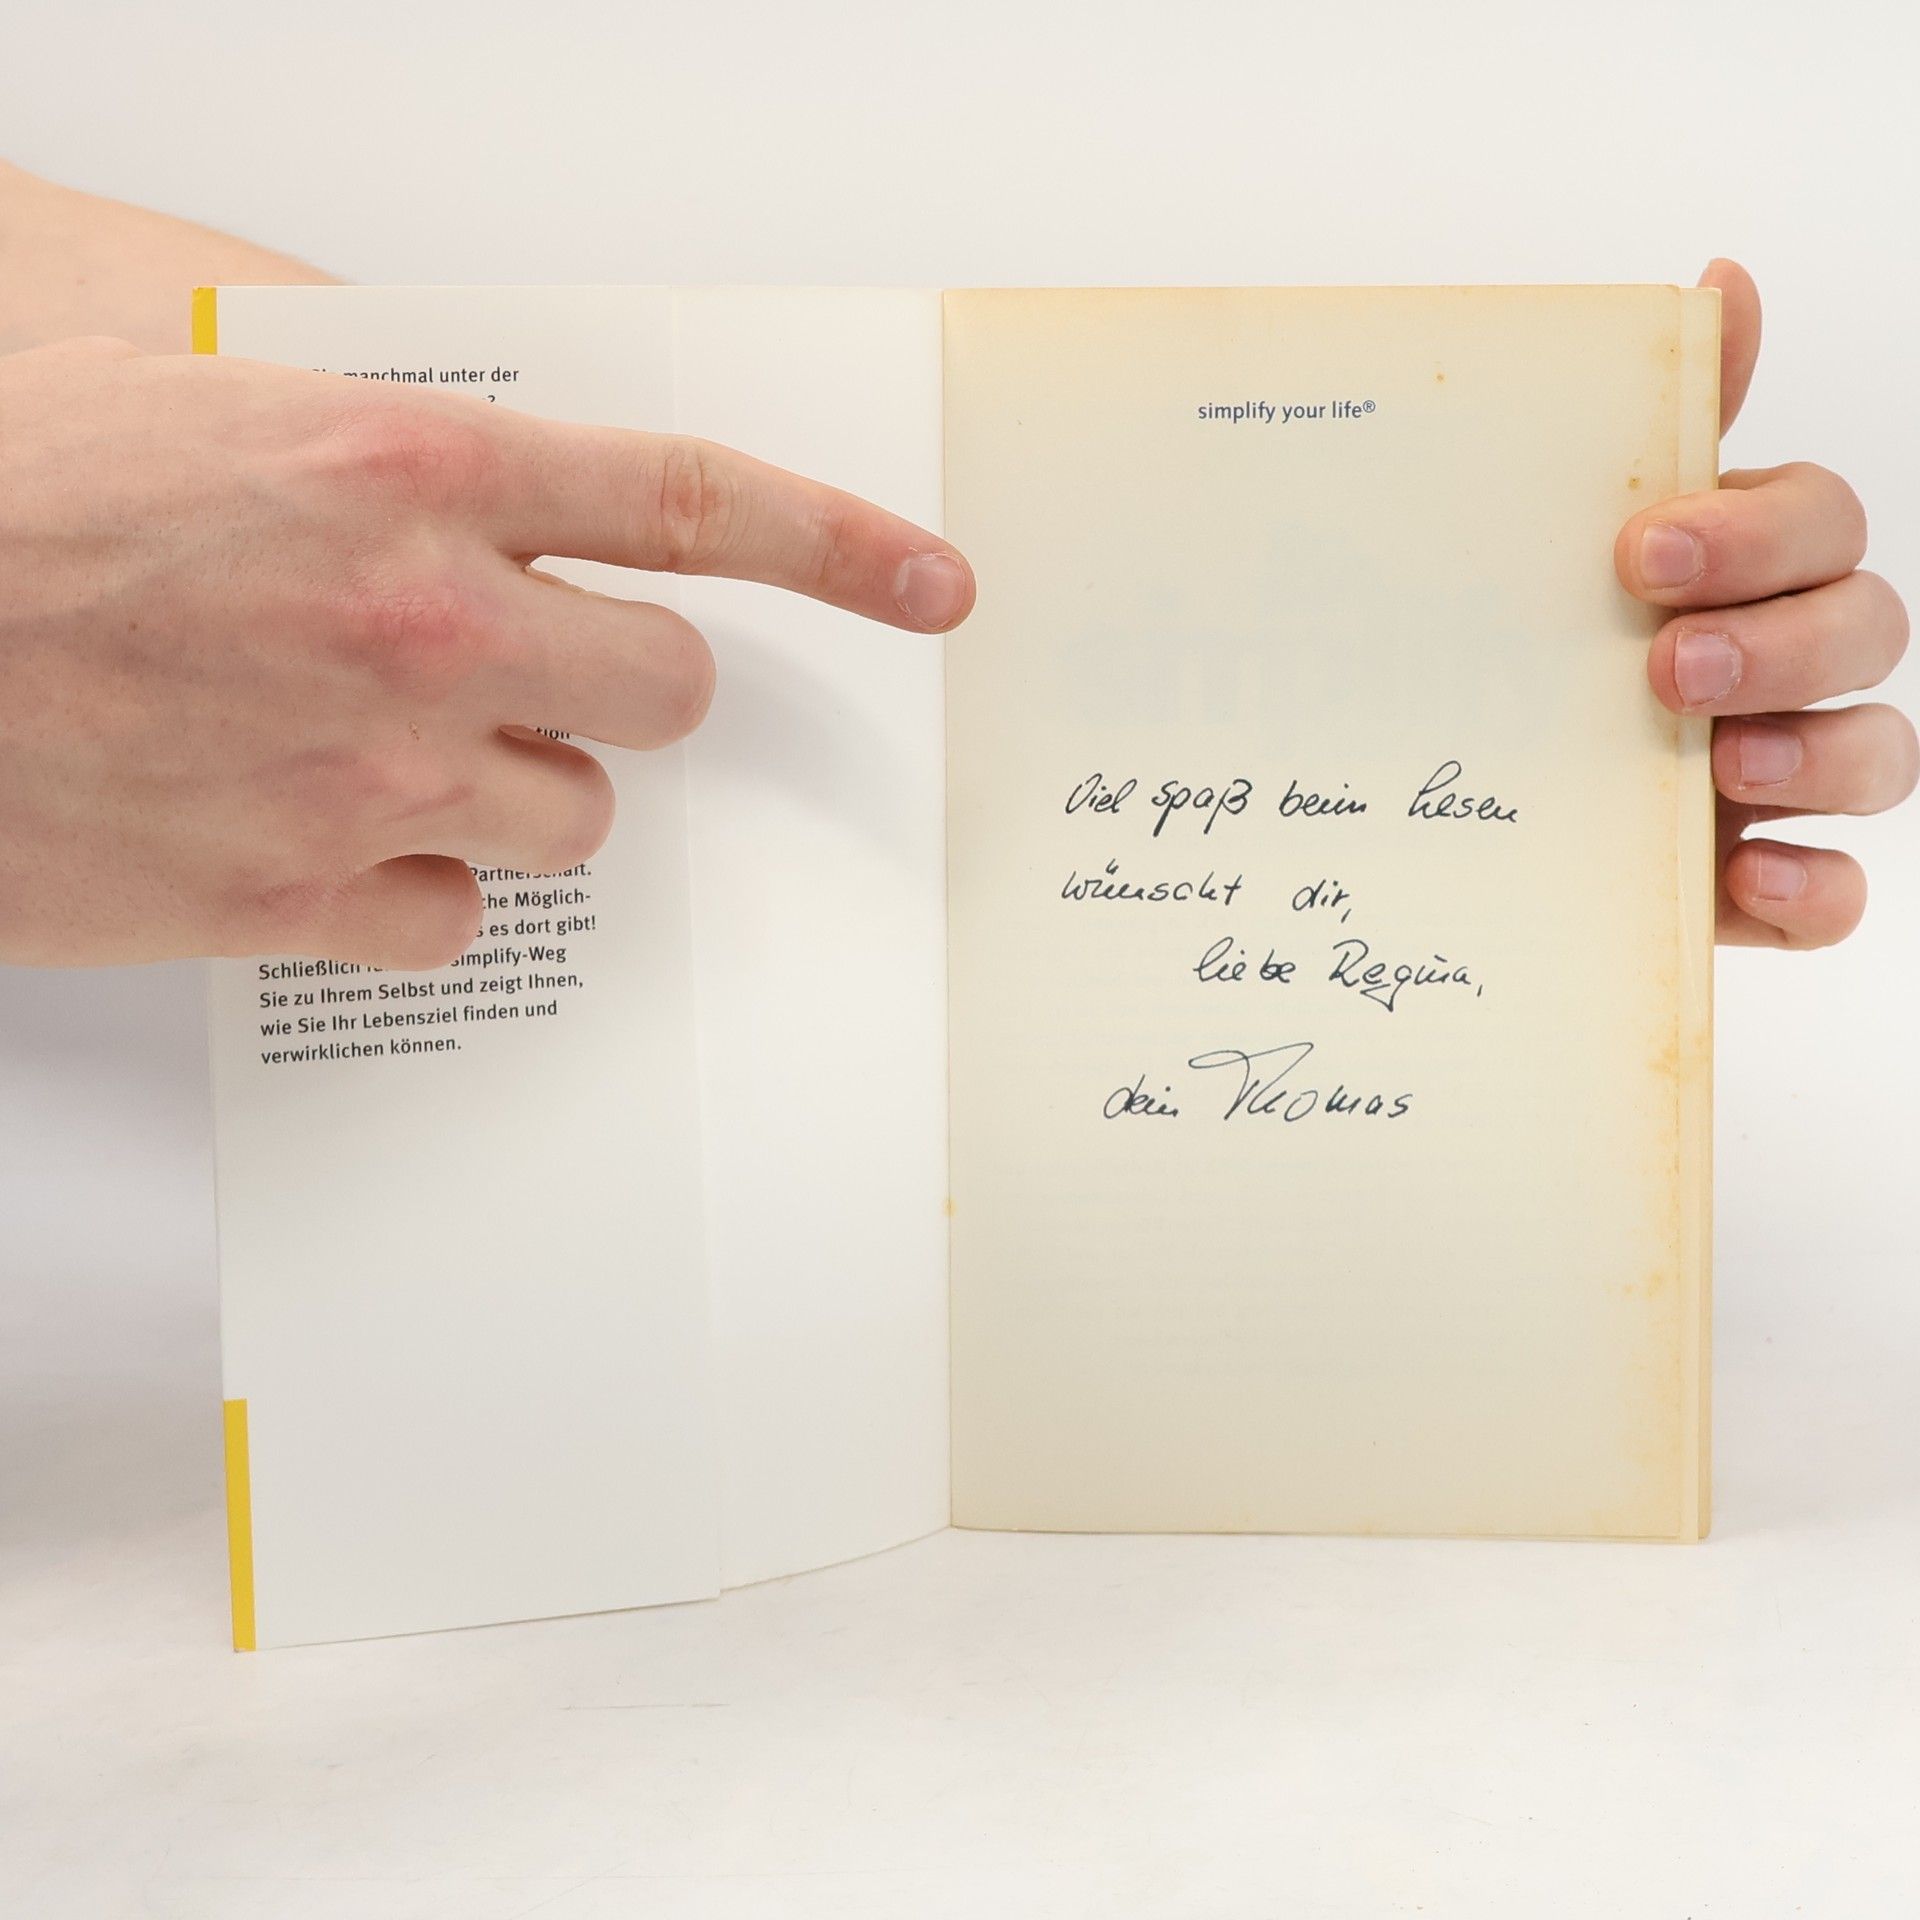 manchmal unter der
tion
Partnerschaft.
che Möglich-
s es dort gibt!
Schließlich simplify-Weg
Sie zu Ihrem Selbst und zeigt Ihnen,
wie Sie Ihr Lebensziel finden und
verwirklichen können.
simplify your life®
Viel Spaß beim Lesen
wünscht dir,
liebe Regina,
dein Thomas